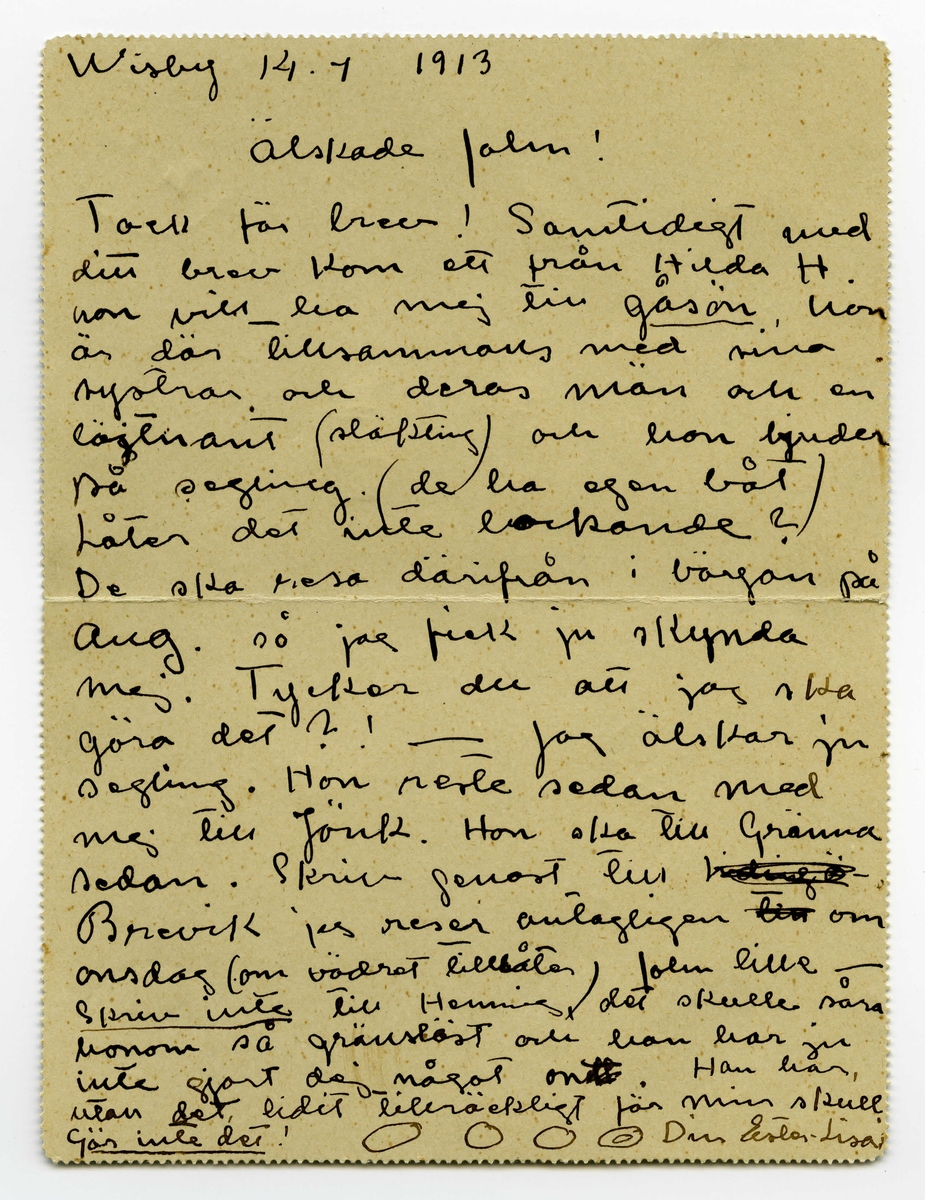 Wisby 14.7 1913
Älskade John!
Tack för brev! Samtidigt med
ditt brev kom ett från Hilda H.
hon vill ha mej till gåsön, hon
är där tillsammans med sina
systrar och deras män och en
löjtnant (släkting) och hon bjuder
på segling. (de ha egen båt)
Låter det inte lockande?
De ska resa därifrån i början på
Aug. så jag fick ju skynda
mej. Tycker du att jag ska
göra det?! — Jag älskar ju
segling. Hon reste sedan med
mej till Jönk. Hon ska till Gränna
sedan. Skriv genast till
Brevik jag reser antagligen till om
onsdag (om vädret tillåter) John lille —
Skriv inte till Henning, det skulle såra
honom så gränslöst och han har ju
inte gjort dej något ont. Han har,
utan det, lidit tillräckligt för min skull
Gör inte det! Din Ester-Lisa